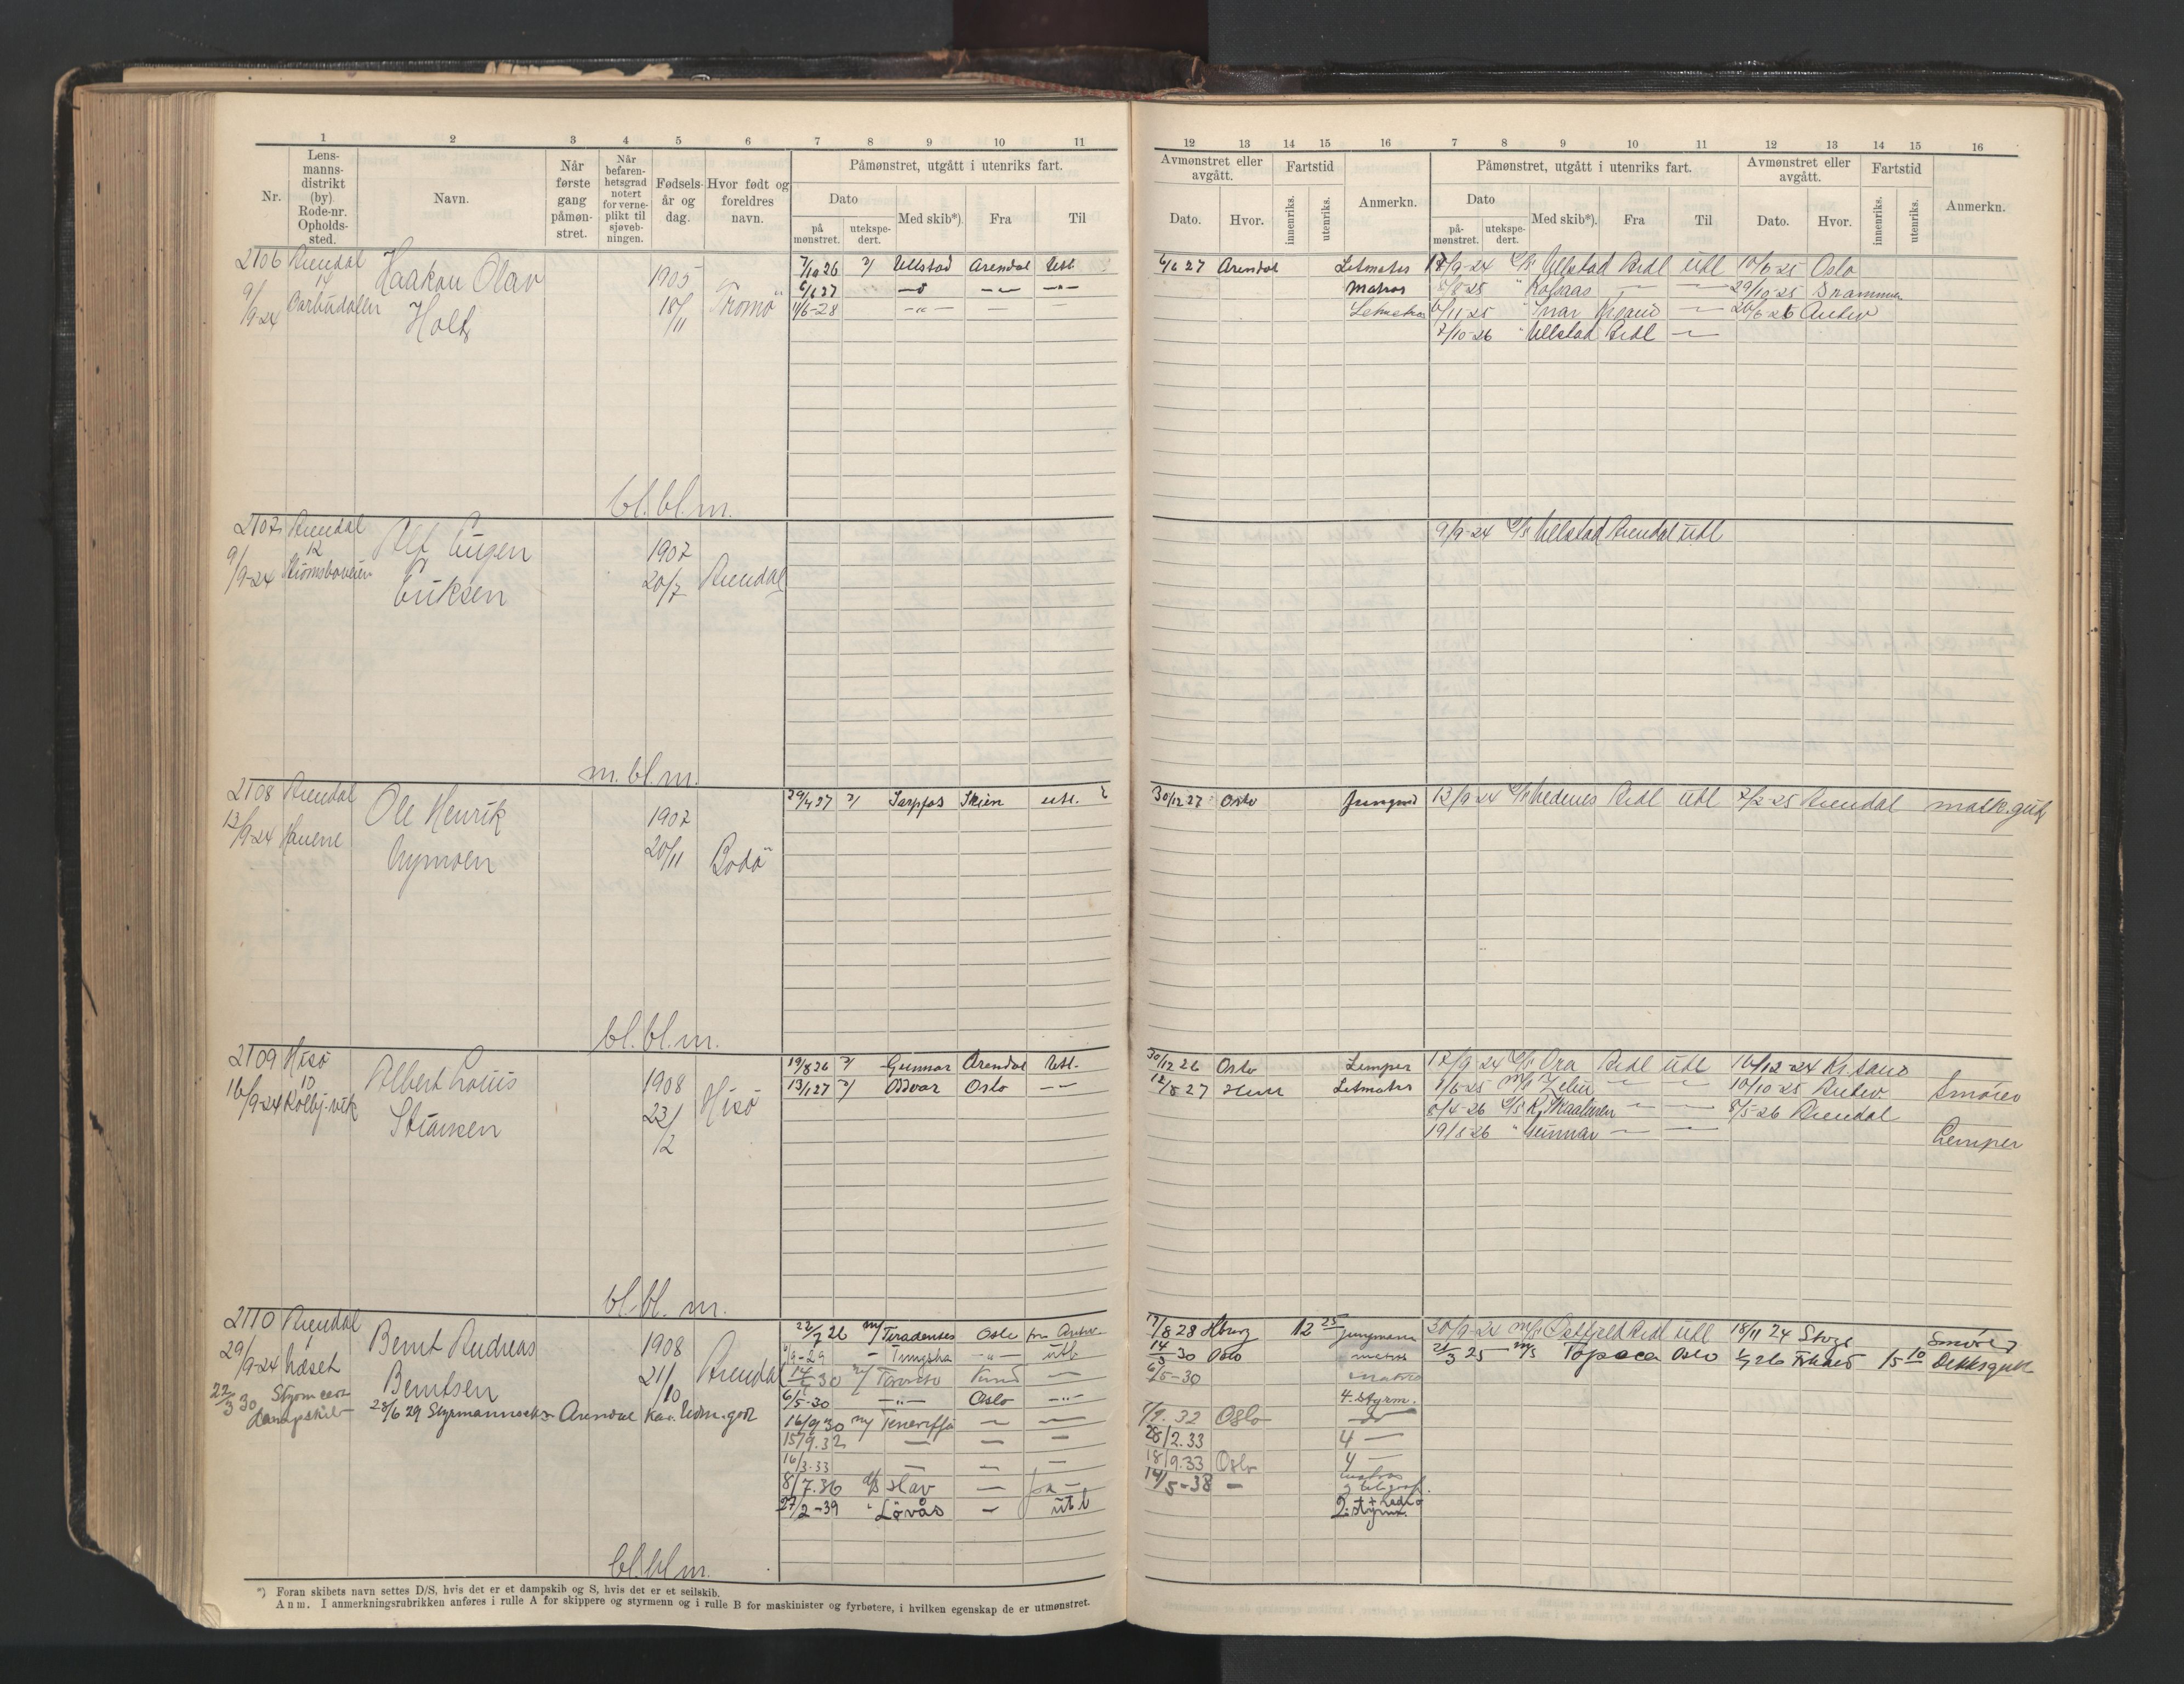 1 2 3 4 5 6 7 8 9 10 11
Nr.
Lens-
manns-
distrikt
(by)
Rode-nr.
Opholds-
sted.
Navn.
Når
første
gang
påmøn-
stret.
Når
befaren-
hetsgrad
notert
for verne-
plikt til
sjøveb-
ningen.
Fødsels-
år og
dag.
Hvor født og
foreldres
navn.
Påmønstret, utgått i utenriks fart.
Dato
på
mønstret.
utekspe-
dert.
Med skib*).
Fra
Til
12 13 14 15 16 7 8 9 10 11 12 13 14 15 16
Avmønstret eller
avgått.
Dato.
Hvor.
Fartstid
innenriks.
utenriks.
Anmerkn.
Påmønstret, utgått i utenriks fart.
Dato
på-
mønstret.
utekspe-
dert.
Med skib*).
Fra
Til
Avmønstret eller
avgått.
Dato.
Hvor.
Fartstid
innenriks.
utenriks.
Anmerkn.
2106 Arendal
14
9/9-24 Barbudalen
Haakon Olav
Holt
1905
18/11
Tromö
7/10 26 Ullstad Arendal Utl.
6/6 27
11/6-28 -"- — —
bl.bl.m.
6/6 27 Arendal Letmatros
Matros
Letmatros
9-24 Ullstad Ardl utl 10/6-25 Oslo
8-25 Kolsaas — — 29/10-25 Drammen
6/11 25 Ivar — 26/6-26 Antw
7/10-26 " Ullstad Ardl —
2107 Arendal
12
9/9-24 Strömsboveien
Alf Eugen
Eriksen
1907
20/7
Arendal
m.bl.m.
9/9-24 D/S Ullstad Arendal utl
2108 Arendal
13/9-24 Havene
Ole Henrik
Nymoen
1907
20/11
Bodö
29/4 27 Sarpfos Skien utl.
bl.bl.m.
30/12 27 Oslo Jungmd
13/9-24 D/S Nedenes Ardl utl 2/2-25 Arendal mask.gut
2109 Hisö
10
16/9-24 Kolbj.vik
Albert Louis
Stiansen
1908
23/2
Hisö
19/8 26 Gunnar Arendal Utl.
13/1 27 Oslo —
bl.bl.m.
30/12 26 Oslo Lemper
12/8 27 Letmatros
17/9-24 D/S Ora Ardl utl 16/12-24 Kr.sand
1/6-25 M/S — — 10/10-25 Antw. Smörer
8/4-26 D/S — — 8/5-26 Arendal
19/8-26 " Gunnar — — Lemper
2110 Arendal
1
29/9-24 Næset
22/3 30 Styrm cert
Dampskib
Bernt Andreas
Berntsen
1908
21/10
Arendal
28/6 29 Styrmannseks. Arendal Kar. Udm. godt
22/7 26 M/ Oslo fra Antw.
-29 — -"- utl
30 M/ Toronto —
6/5-30 -"- Oslo -"-
16/9 30 M/ Teneriffa — —
15/9.32 — — —
16/3-33 — — —
8/7.36 D/S Slav — —
27/2-39 " Lövås — utl
bl.bl.m.
8 28 Hburg 12 25 jungmann
14/3 30 Oslo matros
6/5-30 matros
4. styrm.
9.32 Oslo
28/2.33 4 —
18/9.33 Oslo 4 —
14/5-38 — matros
2. styrm.
30/9-24 M/S Ardl utl 18/11 24 Smörer
21/3 25 M/S Topeca Oslo 26 15 10 Dekksgutt
*) Foran skibets navn settes D/S, hvis det er et dampskib og S, hvis det er et seilskib.
Anm. I anmerkningsrubrikken anføres i rulle A for skippere og styrmenn og i rulle B for maskinister og fyrbøtere, i hvilken egenskap de er utmønstret.